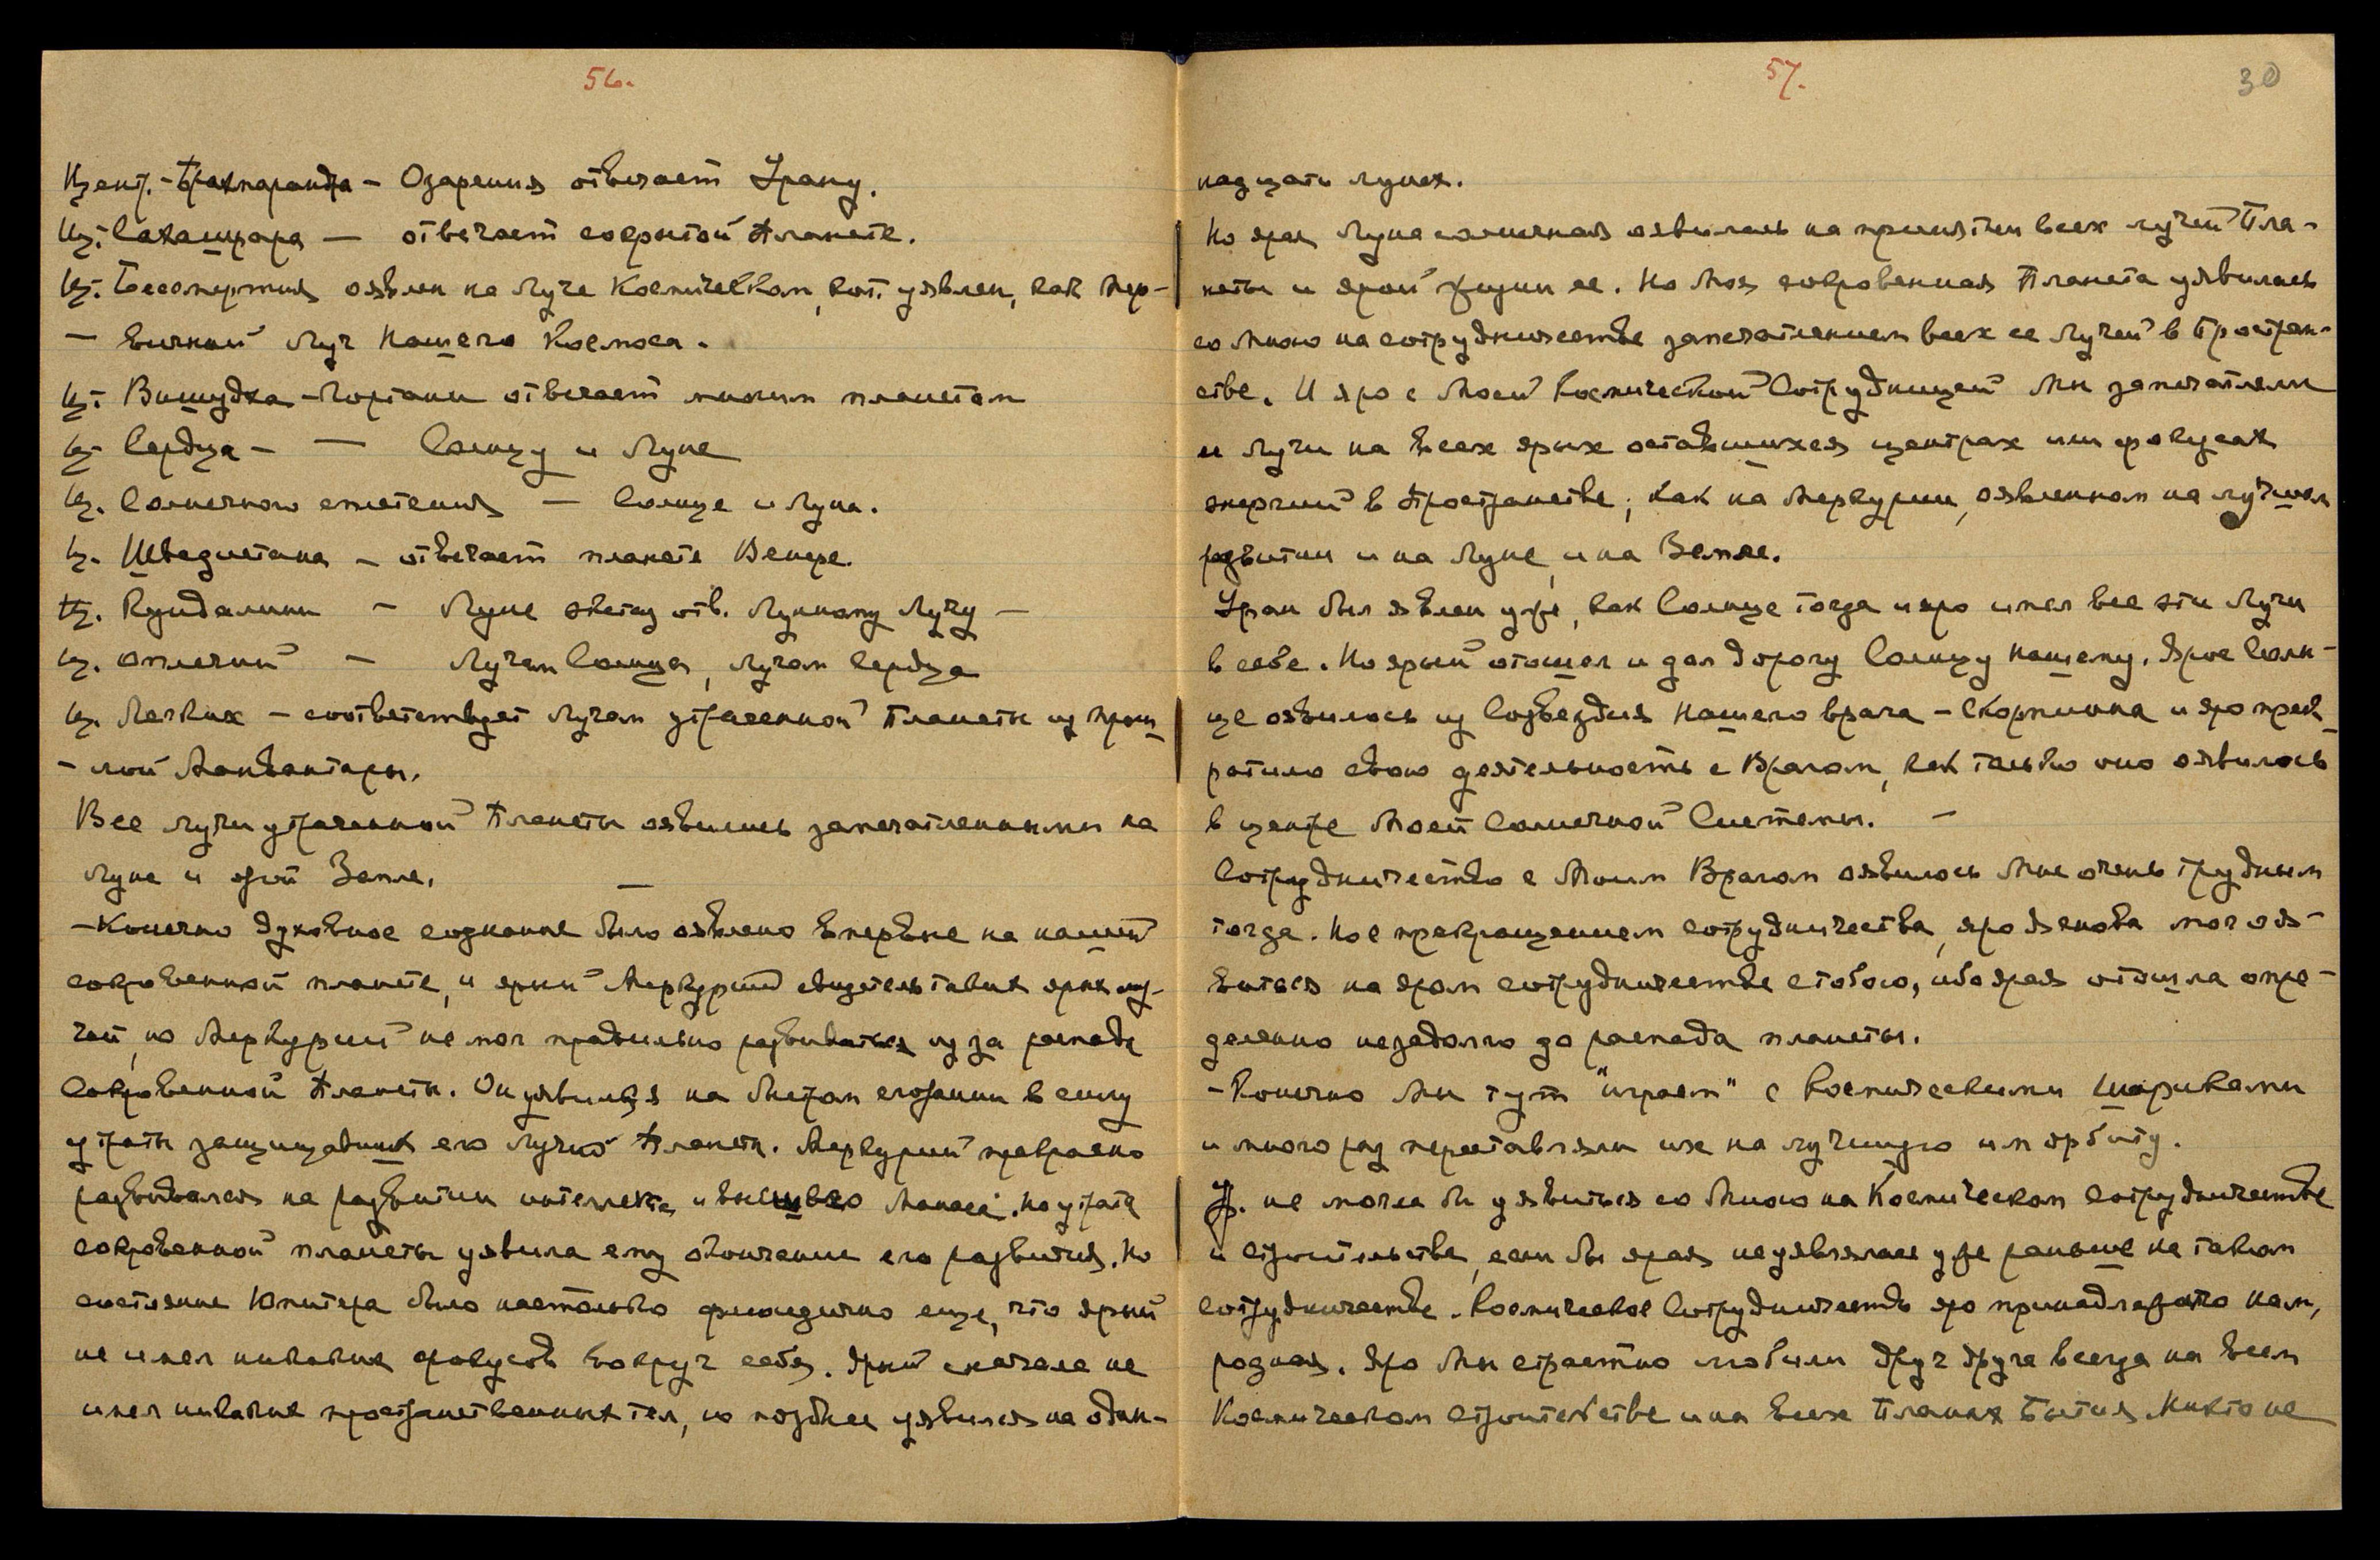 56.
Цент. - Брахмарандра - Озарения отвечает Урану.
Ц. Сахасрара — отвечает сокрытой Планете.
Ц. Бессмертия оявлен на Луче Космическом, кот. уявлен, как Пер-
- вичный Луч Нашего Космоса.
Ц. Вишудха - Гортани отвечает многим планетам
Ц. Сердца - — Солнцу и Луне
Ц. Солнечного сплетения — Солнце и Луна.
Ц. - отвечает планете Венере.
Ц. Кундалини - Луне отв. Лунному Лучу —
Ц. оплечий - Лучам Солнца, лучам Сердца
Ц. Легких - соответствует Лучам утраченной Планеты из прош-
- лой Манвантары.
Все лучи утраченной Планеты оявились запечатленными на
Луне и Земле. —
- Конечно духовное сознание было оявлено впервые на нашей
сокровенной планете, и ярый Меркурий ярых лу-
чей, но Меркурий не мог правильно развиваться из за распада
Сокровенной Планеты. Он уявился на сгорании в силу
утраты защищавших его лучей Планеты. Меркурий прекрасно
развивался на развитии интеллекта и высшего Манаса. Но утрата
сокровенной планеты уявила ему окончание его развития. Но
состояние Юпитера было настолько флюидично еще, что ярый
не имел никаких фокусов вокруг себя. Ярый сначала не
имел никаких пространственных тел, но позднее уявился на один-
57.
30
надцати лунах.
Но ярая Луна солнечная оявилась на принятии всех лучей Пла-
неты и ярой жизни ее. Но Моя сокровенная Планета уявилась
со Мною на сотрудничестве запечатлением всех ее Лучей в Простран-
стве. И яро с Моей Космической Сотрудницей Мы запечатлели
ее Лучи на всех ярых оставшихся центрах или фокусах
энергий в Пространстве; как на Меркурии, оявленном на лучшем
развитии и на Луне, и на Земле.
Уран был явлен уже, как Солнце тогда и яро имел все эти Лучи
в себе. Но ярый отошел и дал дорогу Солнцу Нашему. Ярое Солн-
це оявилось из Созвездия Нашего врага - Скорпиона и яро прек-
ратило свою деятельность с Врагом, как только оно оявилось
в центре Моей Солнечной Системы. —
Сотрудничество с Моим Врагом оявилось Мне очень трудным
тогда. Но с прекращением сотрудничества, яро Я снова мог оя-
виться на яром сотрудничестве с тобою, ибо ярая отошла опре-
деленно незадолго до распада планеты.
- Конечно Мы тут "играем" с Космическими шариками
и много раз переставляли их на лучшую им орбиту.
У. не могла бы уявиться со Мною на Космическом Сотрудничестве
и строительстве, если бы ярая не уявлялась уже раньше на таком
сотрудничестве. Космическое Сотрудничество яро принадлежало нам,
родная. Яро Мы страстно любили друг друга всегда на всем
Космическом строительстве и на всех Планах Бытия. Никто не